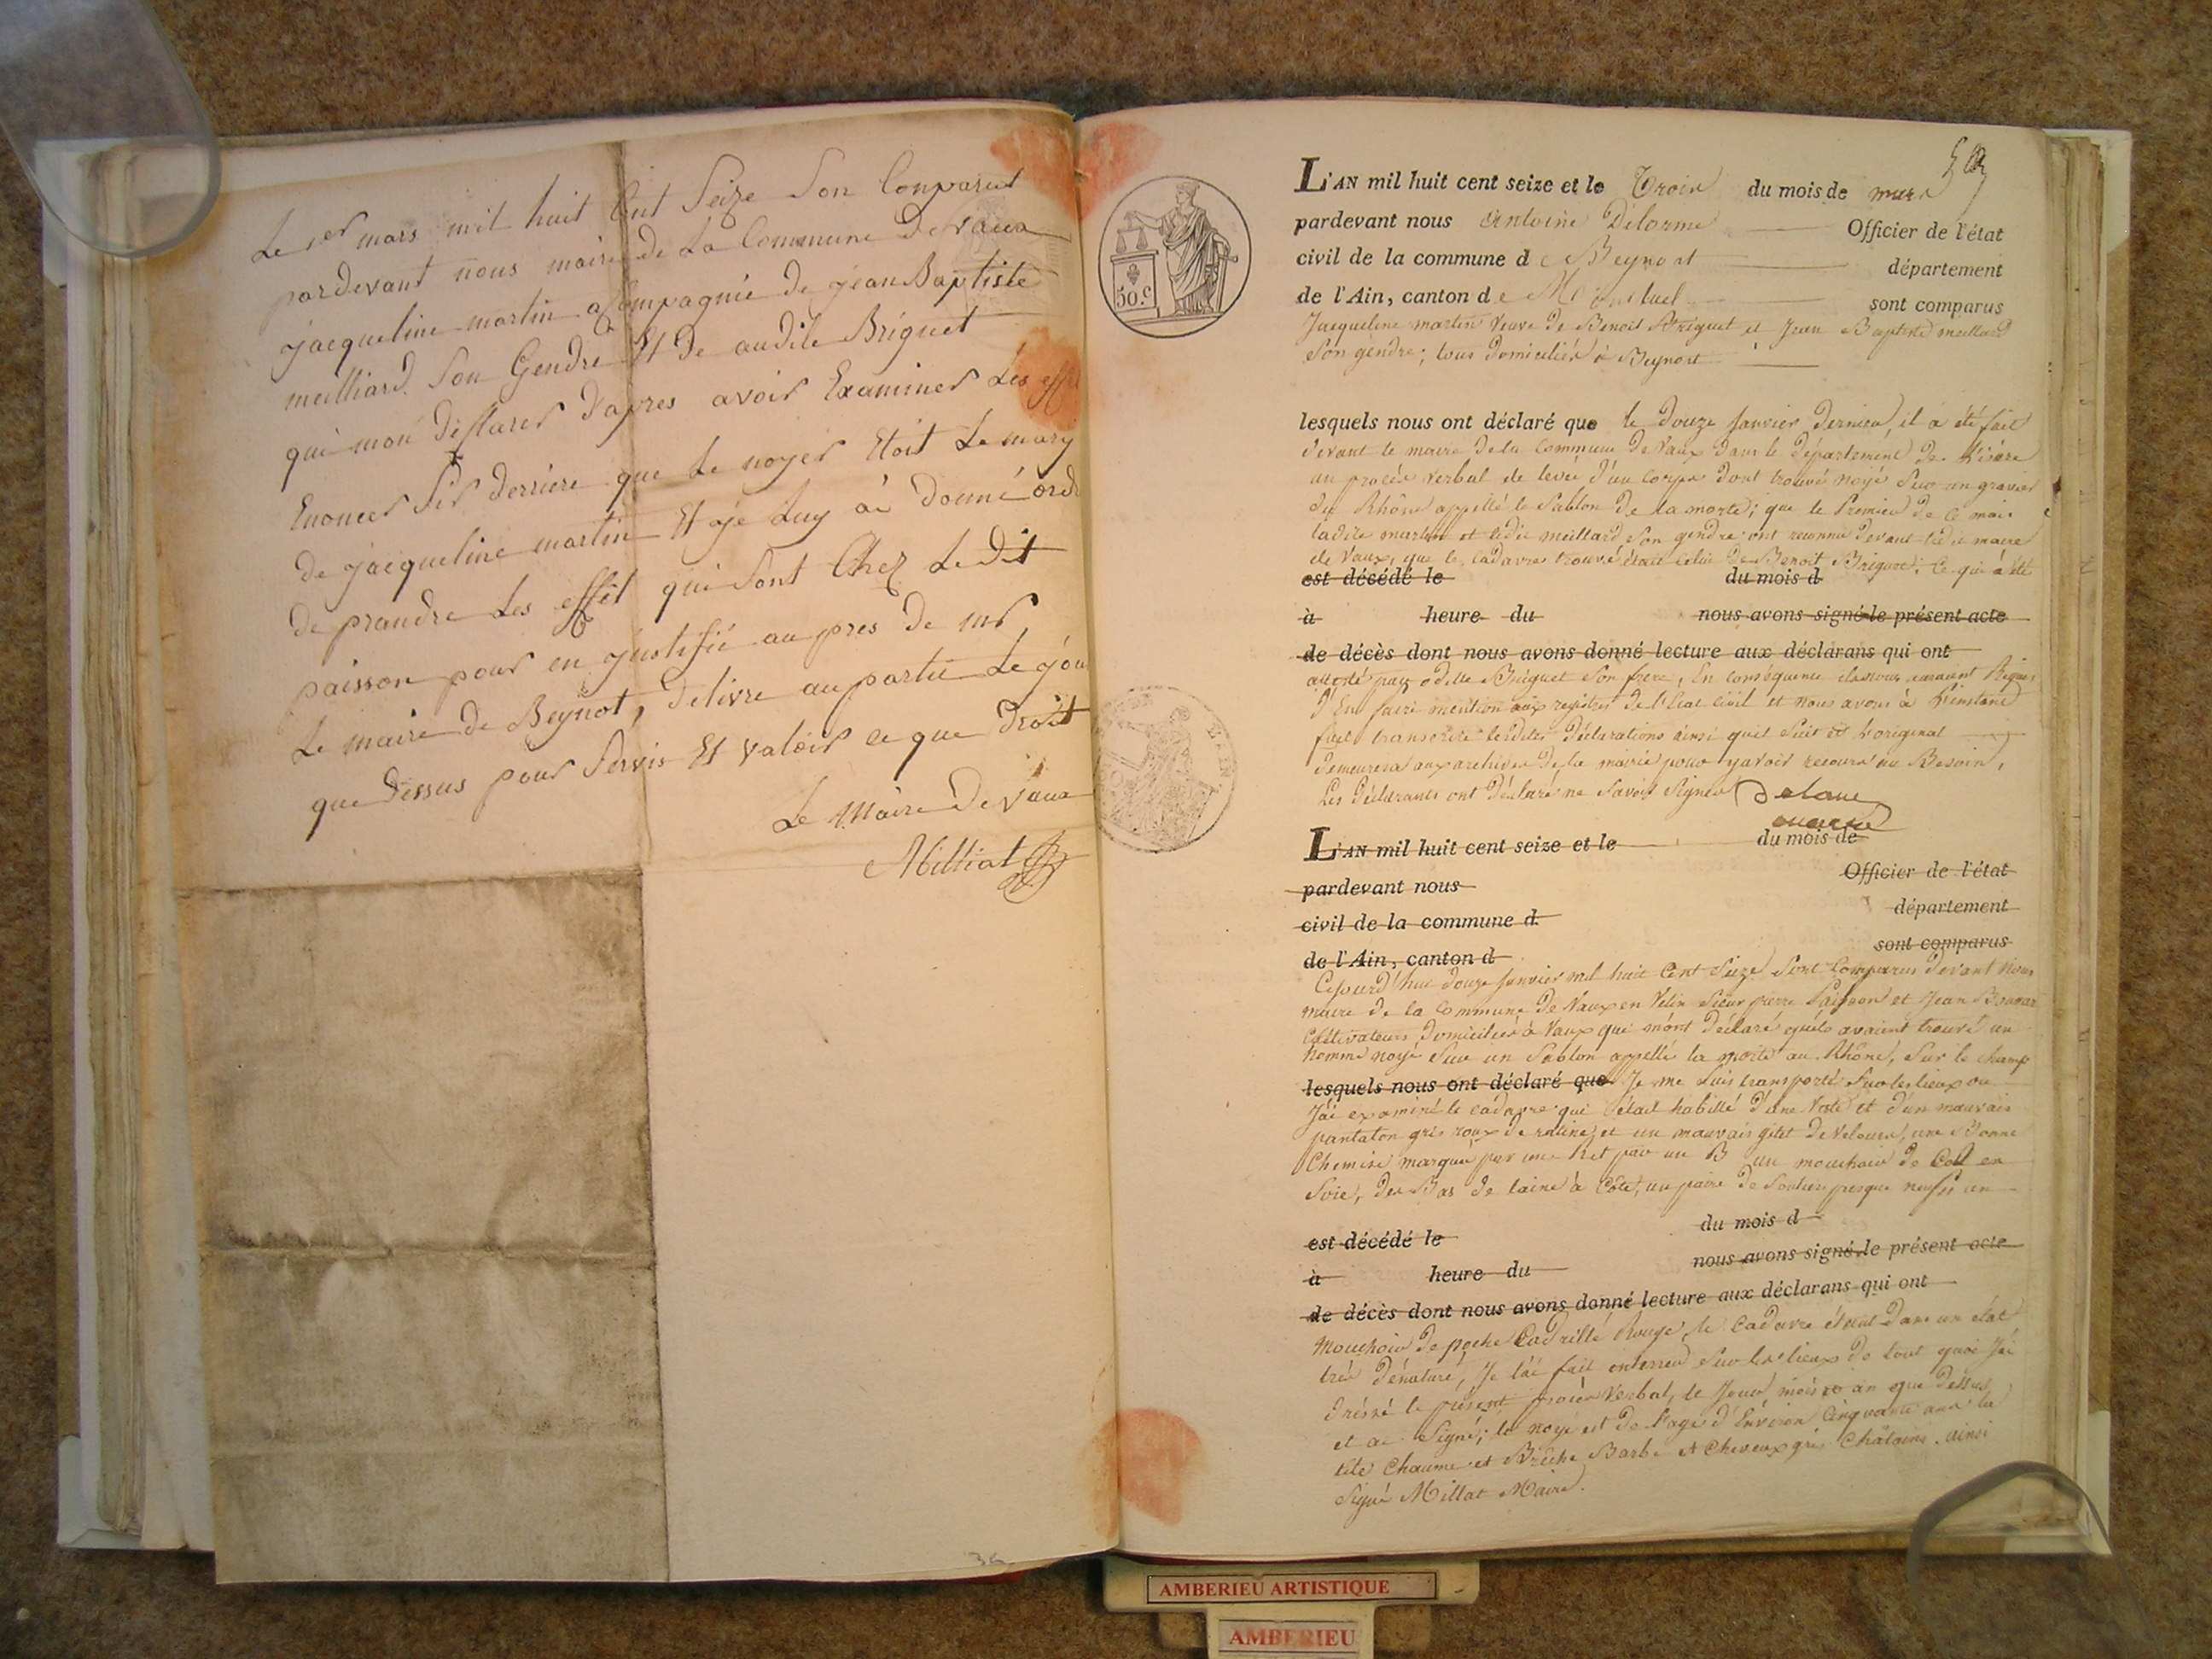 Le 1er mars mil huit Cent Seize Son Comparut
pardevant nous maire de La Commune De vaux
jacqueline martin acompagnié de jean Baptiste
meilliard Son Gendre Et De audile Briguet
qui mon déClarer d'apres avoir Examiner Les eff
Enoncer Sis derriere que Le noyer Etoit Le mary
De jacqueline martin Et je Luy ai Donné ord
De prandre Les effet qui Sont Chez Le Dit
paisson pour en justifié au pres de mr
Le maire de Beynot, Delivre au partie Le jou
que Dessus pour Servir Et valoir ce que Droit
Le Maire De vaux
Milliat
50.C
L'AN mil huit cent seize et le Trois du mois de mars
pardevant nous Antoine Delorme Officier de l'état
civil de la commune de Beynost département
de l'Ain, canton de Montluel sont comparus
Jacqueline martin Veuve De Benoit Briguet et Jean Baptiste meillard
Son gendre; tous Domiciliés à Beynost
lesquels nous ont déclaré que le Douze Janvier Dernier, il a été fait
devant le maire De la Commune De Vaux Dans le Département De L'isère
un procès verbal de levée d'un Corps Dont trouvé noyé Sur un gravier
du Rhône appellé le Sablon De la morte; que le Premier De Ce mois
ladite martin et ledit meillard Son gendre ont reconnu Devant ledit maire
de Vaux, que le Cadavre trouvé était Celui De Benoit Briguet; Ce qui a été
est décédé le du mois d
à heure du nous avons signé le présent acte
de décès dont nous avons donné lecture aux déclarans qui ont
attesté par odille Briguet Son frere, En Conséquence ils nous auraient Requis
D'En faire mention aux registres De l'Etat Civil et nous avons à L'instant
fait transcrire lesdites Déclarations ainsi qu'il Suit et L'original
demeurera aux archives De la mairie pour y avoir recours au Besoin,
Les Déclarants ont Déclaré ne Savoir Signer Delorme
maire
L'AN mil huit cent seize et le du mois de
pardevant nous Officier de l'état
civil de la commune d département
de l'Ain, canton d sont comparus
Cejourd'hui Douze Janvier mil huit Cent Seize Sont Comparus Devant Nous
maire De la Commune De Vaux en Velin Sieur pierre Paisson et Jean
Cultivateurs Domiciliés à Vaux qui m'ont Déclaré qu'ils avaient trouvé un
homme noyé Sur un Sablon appellé la morte au Rhône, Sur le Champ
lesquels nous ont déclaré que Je me Suis transporté Sur les lieux ou
J'ai examiné le Cadavre qui était habillé D'une Veste et D'un mauvais
pantalon gris roux De ratine, et un mauvais gilet De Velours, une Bonne
Chemise marquée par une et par un B un mouchoir de Col en
Soie, Des Bas De laine à Côte, un paire De Soulier presque neufs, un
est décédé le du mois d
à heure du nous avons signé le présent acte
de décès dont nous avons donné lecture aux déclarans qui ont
Mouchoir De poche Cadrillé Rouge, le Cadavre était Dans un état
très Dénaturé, Je l'ai fait enterrer Sur les lieux De tout quoi J'ai
Dréssé le présent procès Verbal, le Jour, mois et an que Dessus
et ai Signé; le noyé est De l'age D'Environ Cinquante ans la
tête Chauve et Brèche Barbe et Cheveux gris Châtains. ainsi
Signé Millat Maire.
AMBERIEU ARTISTIQUE
AMBERIEU